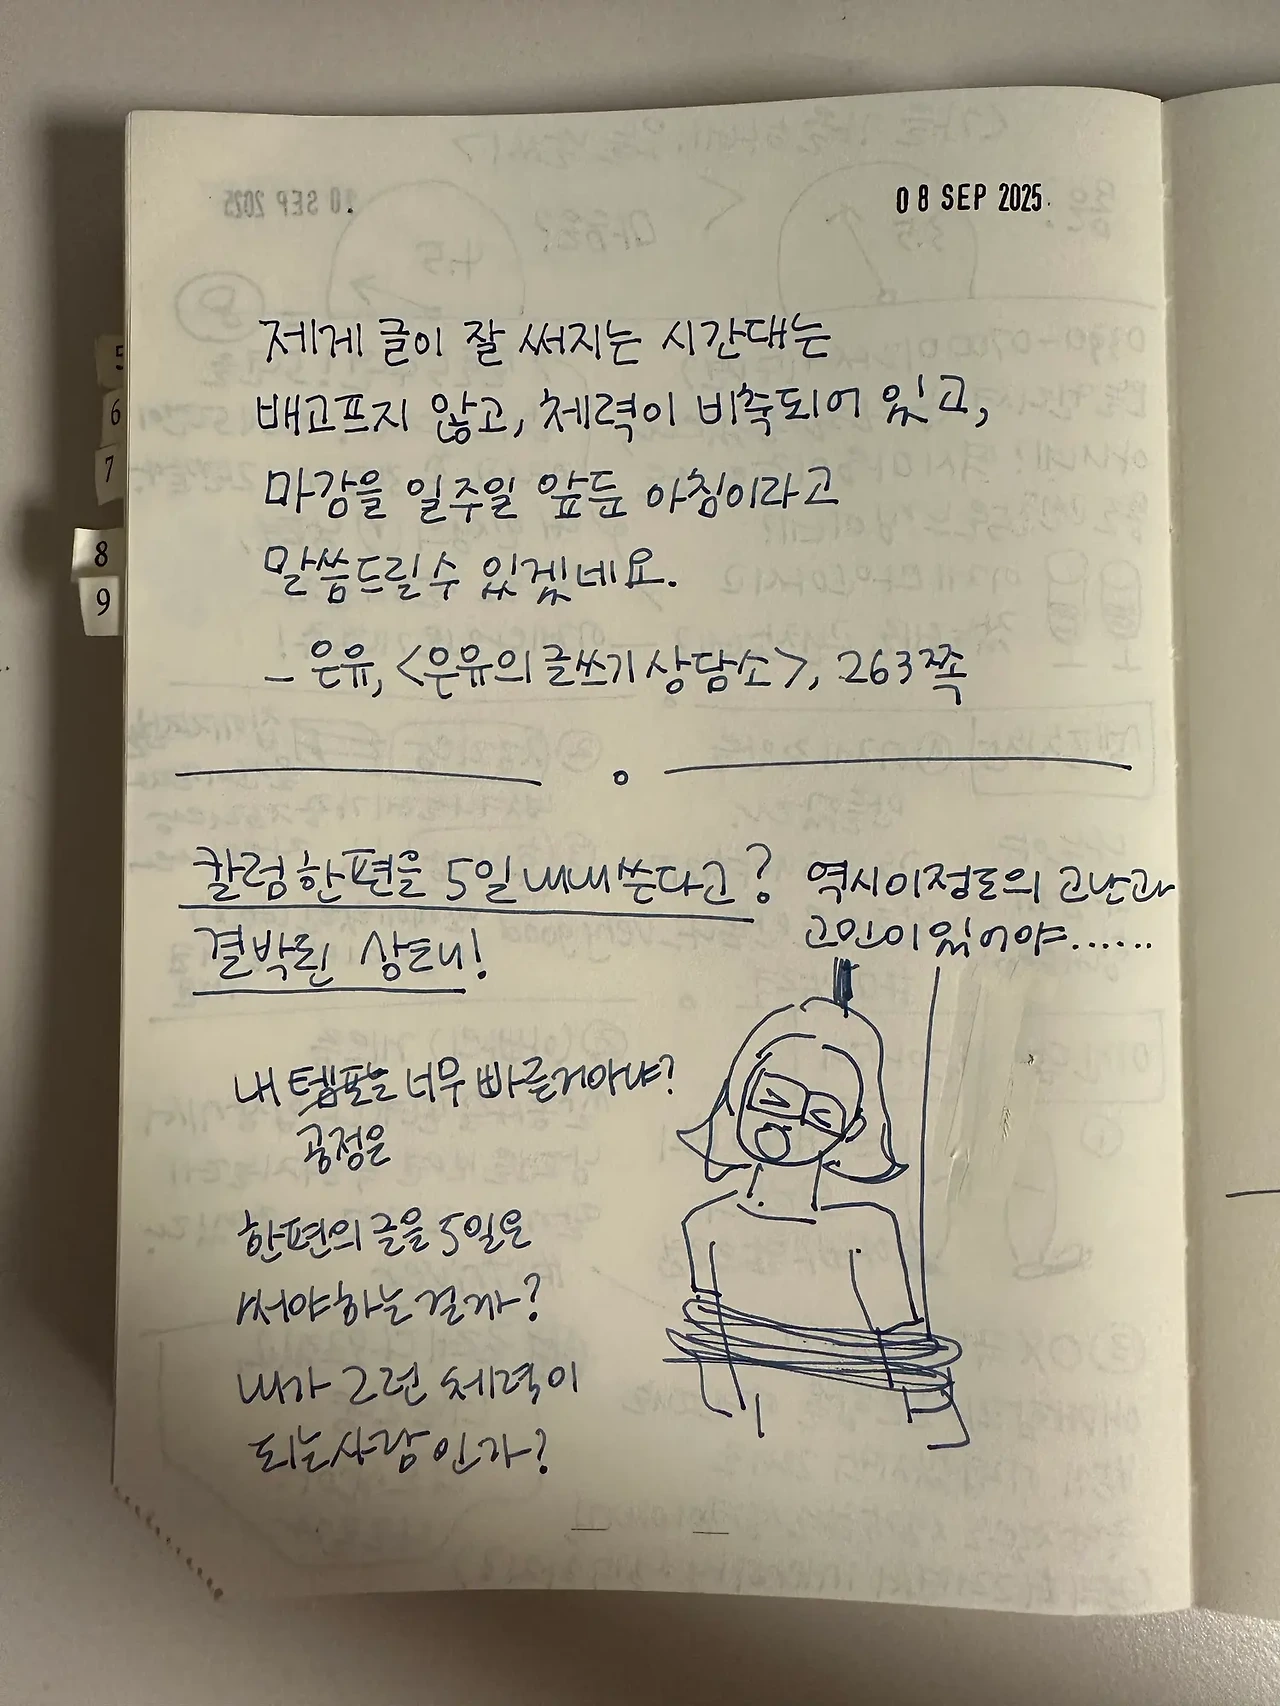 08 SEP 2025
제게 글이 잘 써지는 시간대는
배고프지 않고, 체력이 비축되어 있고,
마감을 일주일 앞둔 아침이라고
말씀드릴 수 있겠네요.
- 은유, <은유의 글쓰기 상담소>, 263쪽
5
6
7
8
9
칼럼 한편을 5일 내내 쓴다고?
결박된 상태!
역시 이정도의 고난과
고민이 있어야......
내 템포는 너무 빠른거아냐?
공정은
한편의 글을 5일은
써야하는걸까?
내가 그런 체력이
되는사람인가?